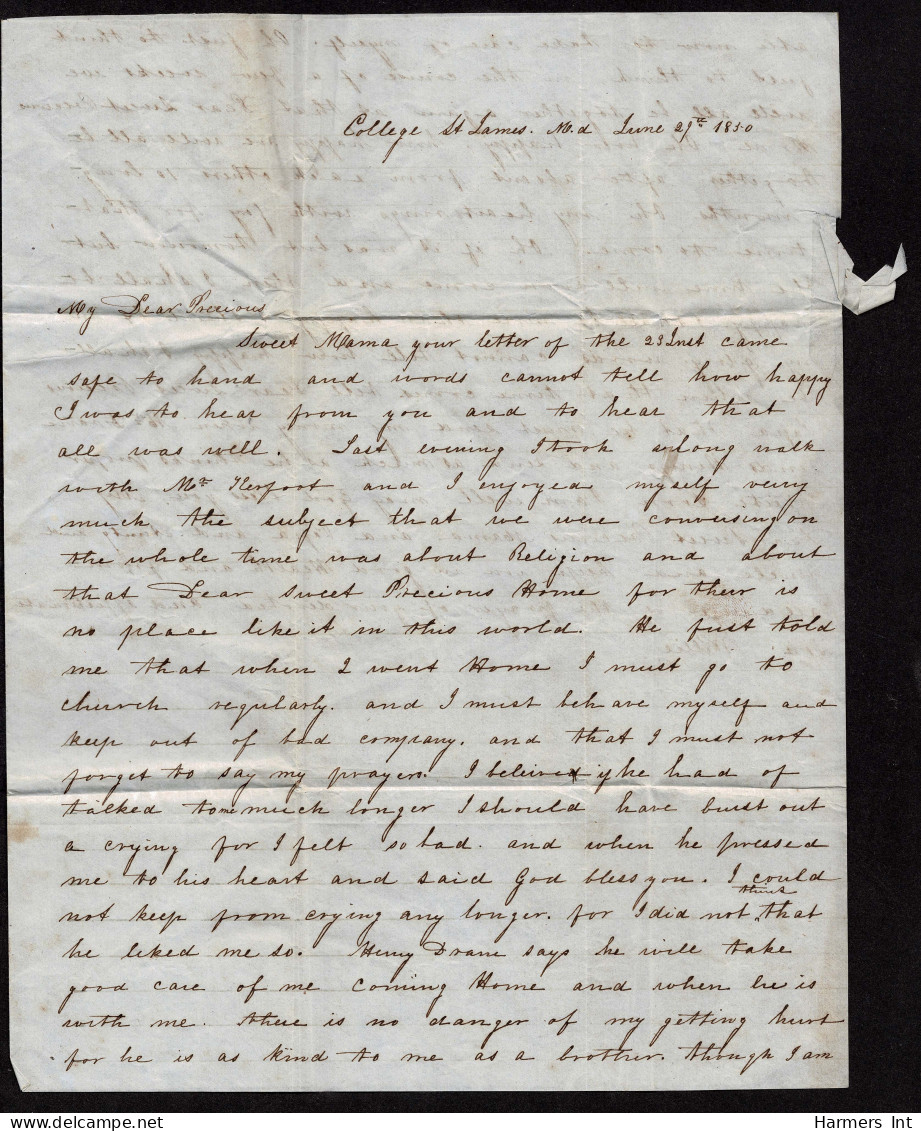 College St James. Md June 29th 1850
My Dear Precious
Sweet Mama your letter of the 23 Inst came
safe to hand and words cannot tell how happy
I was to hear from you and to hear that
all was well. Last evening I took a long walk
with Mr Kerfoot and I enjoyed myself very
much the subject that we were conversing on
the whole time was about Religion and about
that Dear Sweet Precious Home for their is
no place like it in this world. He just told
me that when I went Home I must go to
church regularly. and I must behave myself and
keep out of bad company. and that I must not
forget to say my prayers. I beleive if he had of
talked to me much longer I should have burst out
a crying for I felt so bad. and when he pressed
me to his heart and said God bless you. I could
not keep from crying any longer. for I did not think that
he liked me so. Henry Drane says he will take
good care of me coming Home and when he is
with me. there is no danger of my getting hurt
for he is as kind to me as a brother. though I am
Harmers Int